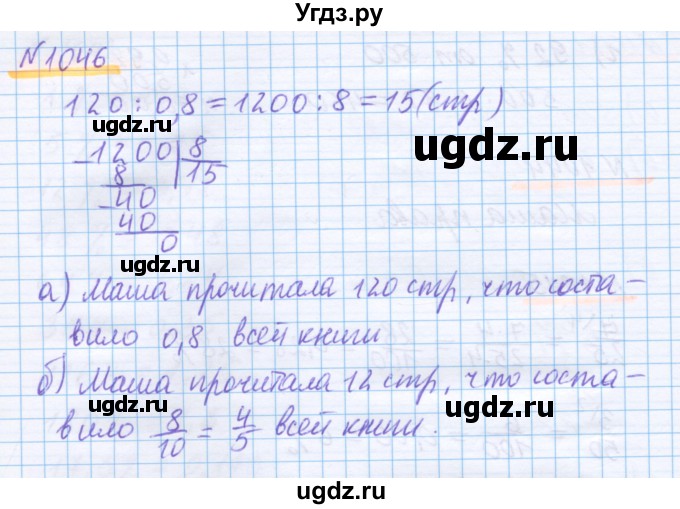 Угдз.ру
N1046
120 : 0,8 = 1200 : 8 = 15 (стр)
ugdz.ru ugdz.ru
- 1200 | 8
8 | 15
- 40
40
0
ugdz.ru ugdz.ru
а) Маша прочитала 120 стр, что соста -
вило 0,8 всей книги
ugdz.ru ugdz.ru
б) Маша прочитала 12 стр, что соста -
вило 8/10 = 4/5 всей книги.
ugdz.ru ugdz.ru
ugdz.ru